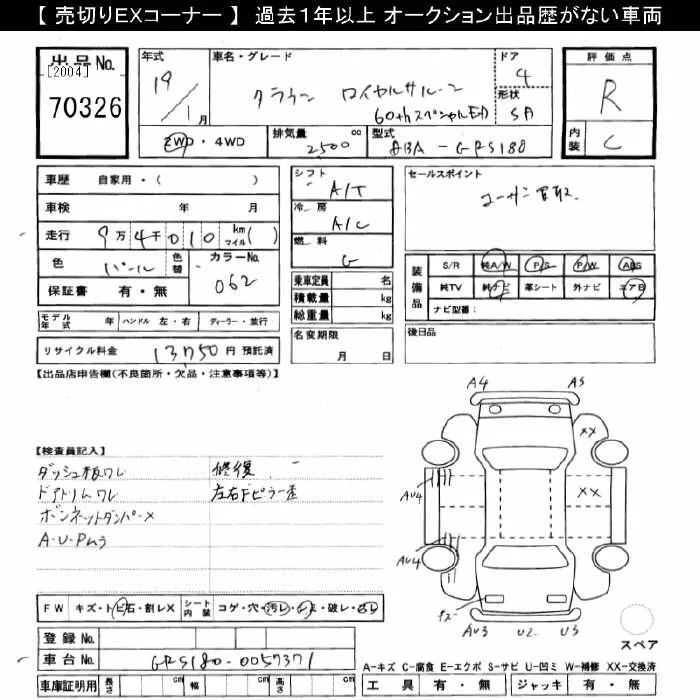 【 売切りEXコーナー 】 過去1年以上 オークション出品歴がない車両
出品No.
[2004]
70326
年式
19/1月
車名・グレード
クラウン ロイヤルサルーン
60thスペシャルED
ドア
4
形状
SA
2WD・4WD
排気量 2500 cc
型式 DBA-GRS180
評価点
R
内装 C
車歴 自家用・( )
車検 年 月
走行 9万4千010 km マイル( )
色 パール 色替 カラーNo. 062
保証書 有・無
シフト A/T
冷房 A/C
燃料 G
乗車定員 名
積載量 kg
総重量 kg
セールスポイント
ユーザー買取
装備品
S/R 純A/W P/S P/W ABS
純TV 純ナビ 革シート 外ナビ エアB
ナビ型番:
モデル年式 年 ハンドル 左・右 ディーラー・並行
リサイクル料金 13750円 預託済
名変期限
月 日
後日品
【出品店申告欄(不良箇所・欠品・注意事項等)】
【検査員記入】
ダッシュ板ワレ 修復
ドアトリムワレ 左右Fピラー歪
ボンネットダンパーX
A・U・Pムラ
A4 A5
XX
XX
AU4
AU4
AU3 U2 U3
スペア
FW キズ・トビ石・割レX シート内装 コゲ・穴・汚レ・シミ・破レ・スレ
登録No.
車台No. GRS180-0057371
車庫証明用 長さ cm 幅 cm 高さ cm
A-キズ C-腐食 E-エクボ S-サビ U-凹ミ W-補修 XX-交換済
工具 有・無 ジャッキ 有・無